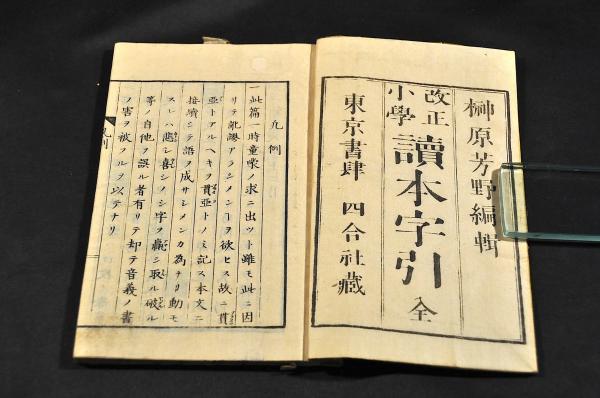 榊原芳野編輯
改正
小學
讀本字引 全
東京書肆 四合社藏
凡例
一此篇一時童蒙ノ求ニ出ツト雖モ此ニ因
リテ訛謬アラシメンヿヲ欲セス故ニ貫
亞トアルヘキヲ貫亞トノミ記ス本文ニ
接續シテ語ヲ成サシメンカ為ナリ動モ
スレハ悲シ喜シノシ字ヲ シ取ル破ル
等ノ自他ヲ誤ル者有リテ却テ音義ノ書
ノ害ヲ被フルヲ以テナリ
凡例